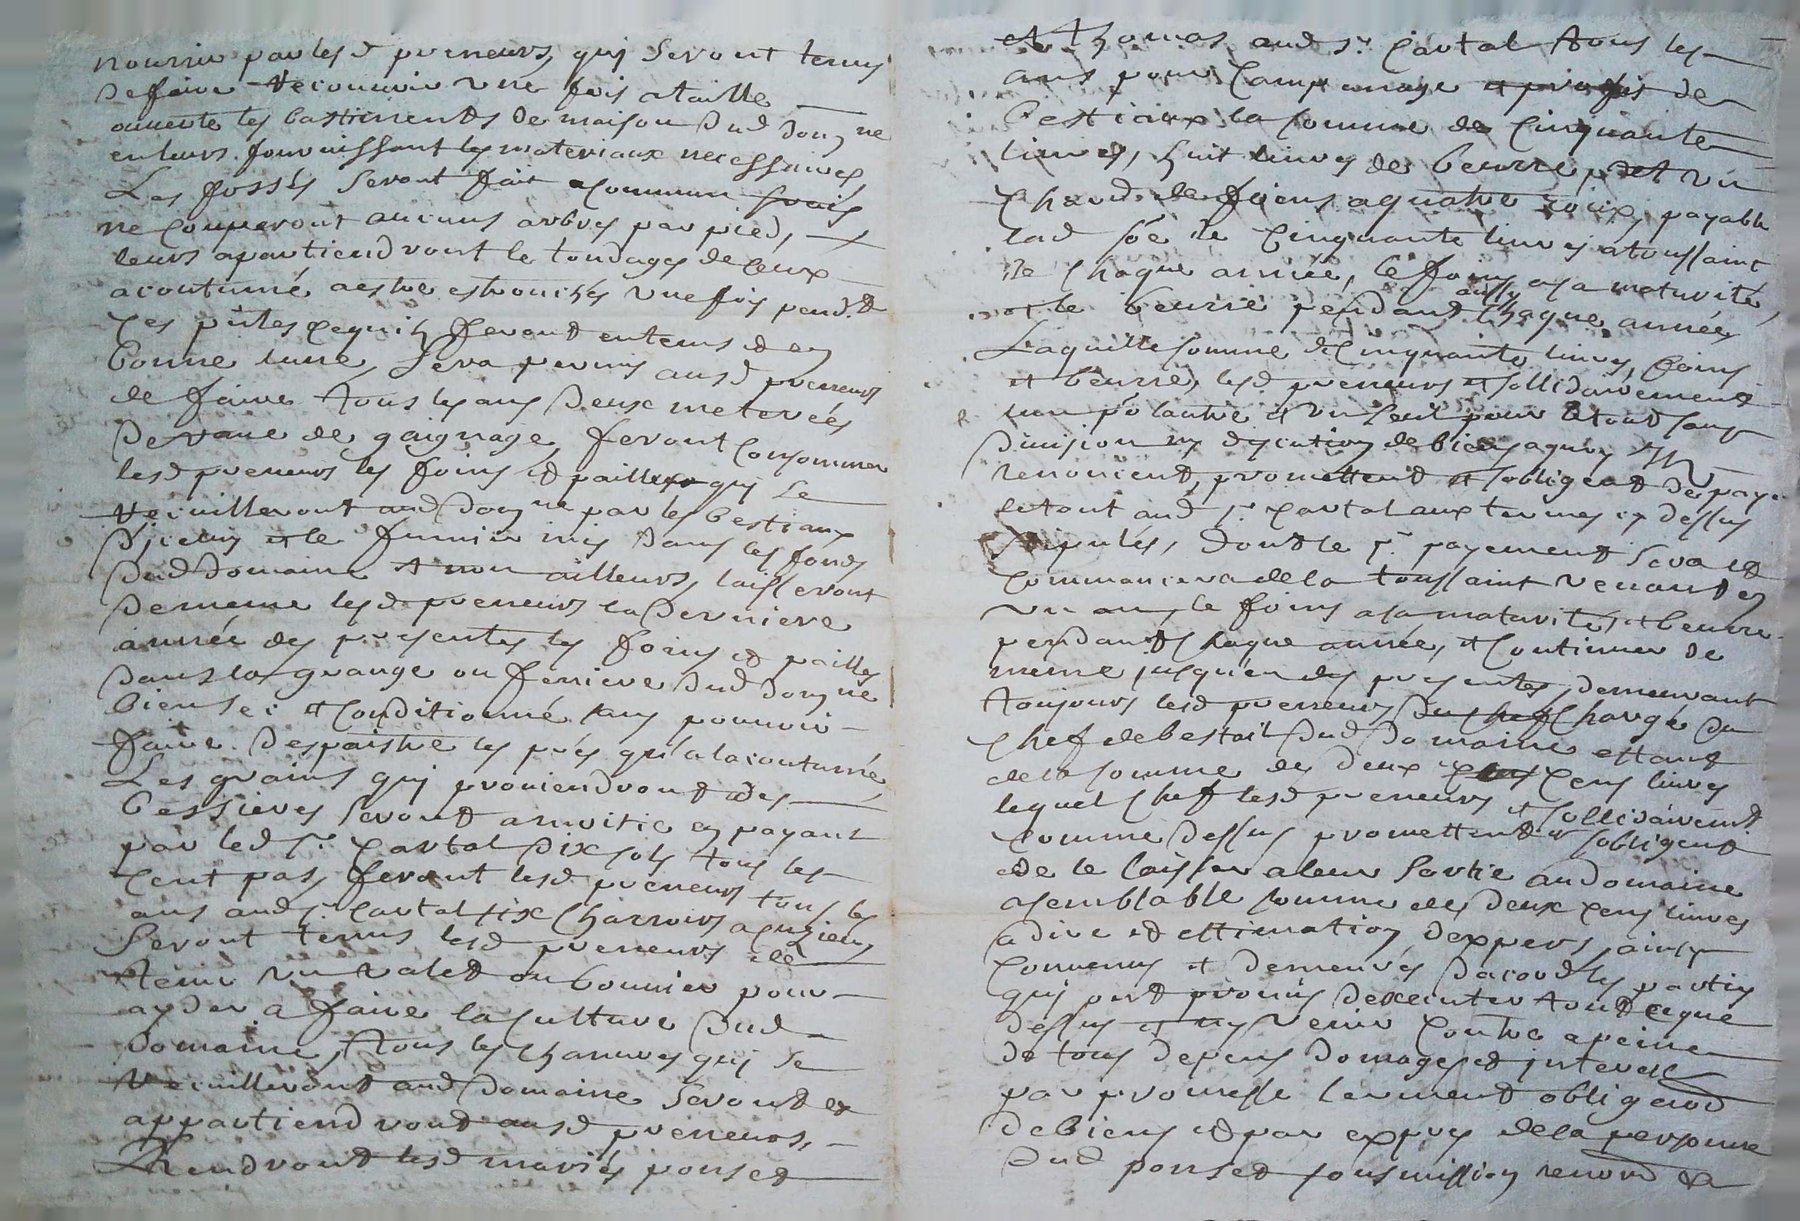 nourrir par lesd preneurs, quj seront tenus
de faire recouvrir une fois a taille
ouverte les bastiments de maison dud domne
en leurs fournissant les materiaux necessaires
Les fossés seront fait a commun frais
ne couperont aucuns arbres par pied,
leurs apartiendront le tondages de ceux
acoutumé aestre estronchés une fois pendt
ces putes ce quils feront en tems et en
bonne lune, sera permis ausd preneurs
de faire tous les ans deux meterées
de rave de gaignage, feront consommer
lesd preneurs les foins et pailles quj se
recuilleront aud domne par les bestiaux
diceluy et le fumier mis dans les fonds
dud domaine et non ailleurs, laisseront
de meme lesd preneurs la derniere
année des presentes les foins et pailles
dans la grange ou feniere dud domne
bien sec et conditionné sans pouvoir
faire despaistre les prés qu'a lacoutumé
Les grains quj proviendront des
bessieres seront a moitie en payant
par led sr. Cartal dix sols tous les
cent pas, feront lesd preneurs tous les
ans aud sr. Cartal six charrois a
seront tenus lesd preneurs de
tenir un valet ou bouvier pour
ayder a faire la culture dud
domaine, tous les chanvres quj se
recuilleront aud domaine seront et
appartiendront ausd preneurs,
Rendront lesd mariés ponset
et thomas aud sr. Cartal tous les
ans pour campanage et profis de
bestiaux la somme de cinquante
livres, huit livres de beurre, et un
chard de foins a quatre roues, payable
lad soe de cinquante livres a toussaint
de chaque année, le foins a sa maturité,
et le beurre pendant aussy chaque année
Laquelle somme de cinquante livres, foins
et beurre, lesd preneurs et sollidairement
lun po lautre et un seul pour le tout sans
division ny discution de biens aquoy Ils
renoncent, promettent et sobligent de paye
le tout aud sr. Cartal aux termes cy dessus
stipulés, dont le pr. payement sera et
commancera de la toussaint venant en
un ans, le foins a sa maturité, et beurre
pendant chaque année, et continuer de
meme jusquen des presentes, demeurant
toujours lesd preneurs chargé du
chef de bestail dud domaine estant
de la somme de deux cens livres
lequel chef lesd preneurs et sollidairemt
comme dessus promettent et sobligent
de le laisser a leur sortie au domaine
a semblable somme de deux cens livres
a dire et estimation dexpers, ainsy
convenus et demeurés dacord les parties
quj ont promis dexecuter tout ceque
dessus et ny venir contre a peine
de tous depens domages et interets
par promesse serment obligeant
de biens et par expres de la personne
dud ponset sousmission renond &